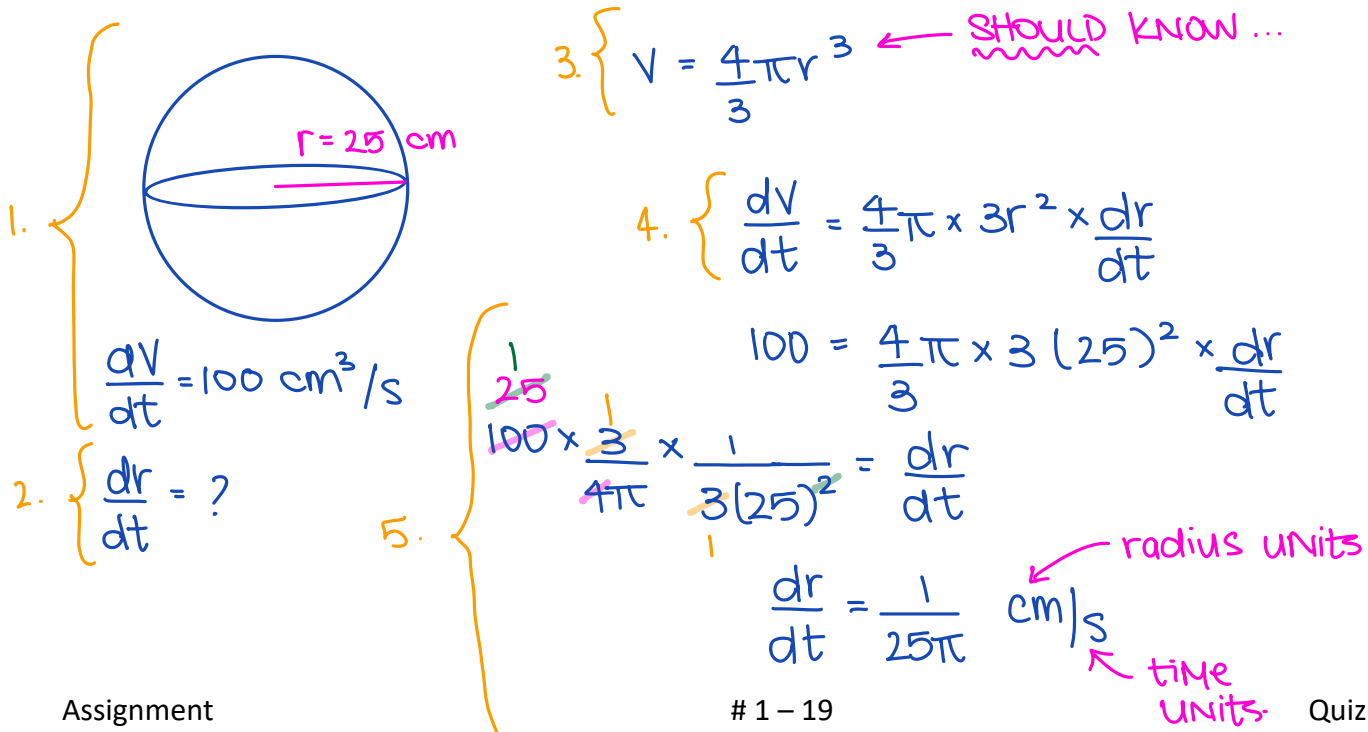 1.
r = 25 cm
dV/dt = 100 cm³/s
2. dr/dt = ?
3. V = 4/3 πr³ ← SHOULD KNOW...
4. dV/dt = 4/3 π × 3r² × dr/dt
100 = 4/3 π × 3 (25)² × dr/dt
5.
1
25
1
100 × 3/4π × 1/3(25)² = dr/dt
1
dr/dt = 1/25π cm/s
radius units
time
units.
Assignment # 1 – 19 Quiz